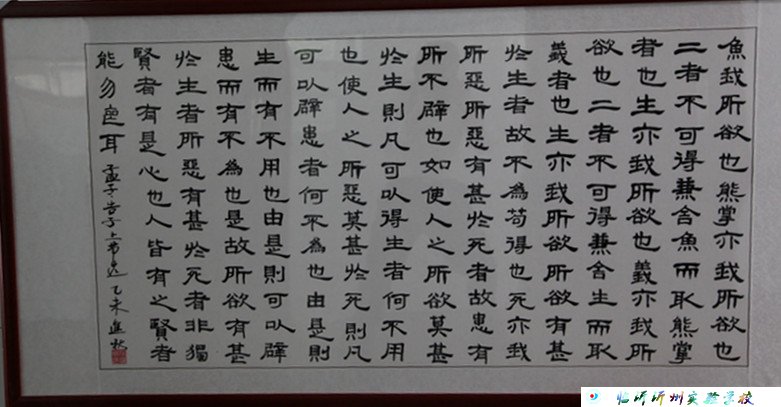 魚我所欲也熊掌亦我所欲也
二者不可得兼舍魚而取熊掌
者也生亦我所欲也義亦我所
欲也二者不可得兼舍生而取
義者也生亦我所欲所欲有甚
於生者故不為苟得也死亦我
所惡所惡有甚於死者故患有
所不辟也如使人之所欲莫甚
於生則凡可以得生者何不用
也使人之所惡莫甚於死則凡
可以辟患者何不為也由是則
生而有不用也由是則可以辟
患而有不為也是故所欲有甚
於生者所惡有甚於死者非獨
賢者有是心也人皆有之賢者
能勿喪耳 孟子告子上节选 乙未進
临沂沂州实验学校